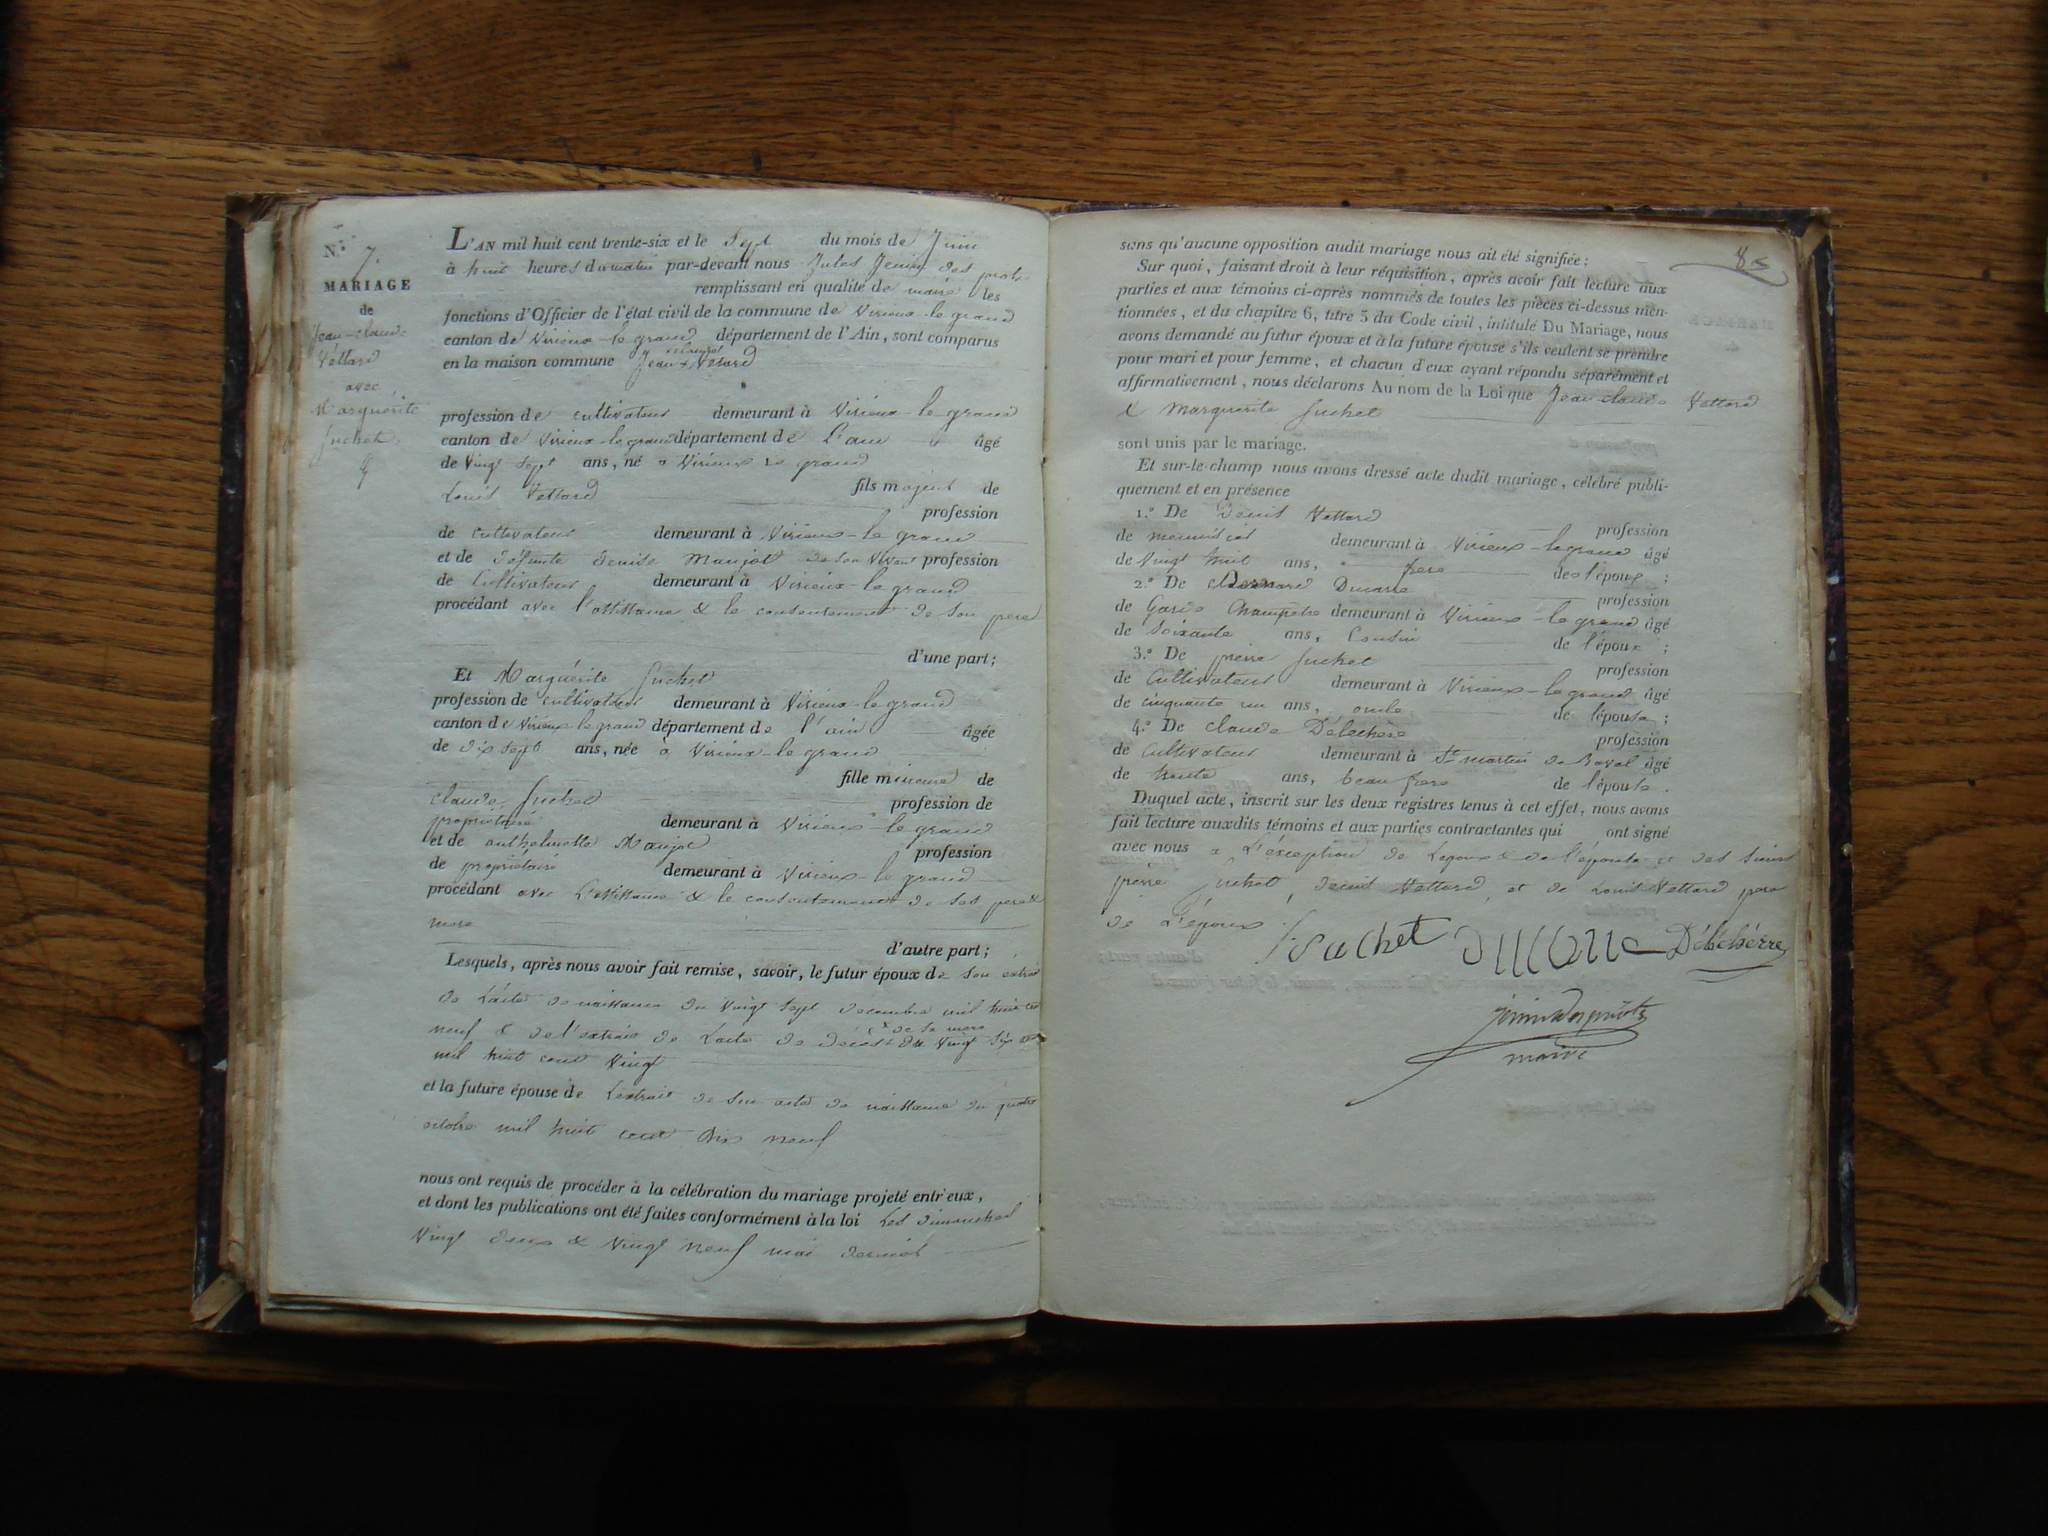 N.° 7.
MARIAGE
de
Jean-claude
Vettard
avec
Marguérite
Juchet
L'AN mil huit cent trente-six et le Sept du mois de Juin
à huit heures du matin par-devant nous Jules Jenin des
remplissant en qualité de maire les
fonctions d'Officier de l'état civil de la commune de Virieux-le grand
canton de Virieux-le grand département de l'Ain, sont comparus
en la maison commune Jean Vettard
profession de cultivateur demeurant à Virieux-le grand
canton de Virieux-le grand département de L'ain âgé
de Vingt Sept ans, né à Virieux le grand
fils majeur de
Louis Vettard profession
de Cultivateur demeurant à Virieux-le grand
et de défunte denise Maujot de son vivant profession
de Cultivateur demeurant à Virieux-le grand
procédant avec l'assistance & le consentement de son pere
d'une part;
Et Marguérite Juchet
profession de cultivateur demeurant à Virieux-le grand
canton de Virieux le grand département de l'ain âgée
de dix Sept ans, née à Virieux-le grand
fille mineure de
claude Juchet profession de
propriétaire demeurant à Virieux-le grand
et de anthelmette Maujot profession
de propriétaire demeurant à Virieux-le grand
procédant avec L'assistance & le consentement de ses pere &
mere
d'autre part;
Lesquels, après nous avoir fait remise, savoir, le futur époux de son extrait
de L'acte de naissance du Vingt Sept decembre mil huit cent
neuf & de l'extrait de L'acte de décès de sa mere du Vingt Six
mil huit cent Vingt
et la future épouse de L'extrait de son acte de naissance du quatre
octobre mil huit cent dix neuf
nous ont requis de procéder à la célébration du mariage projeté entr'eux,
et dont les publications ont été faites conformément à la loi Les dimanches
Vingt deux & Vingt neuf mai dernier
sans qu'aucune opposition audit mariage nous ait été signifiée;
Sur quoi, faisant droit à leur réquisition, après avoir fait lecture aux
parties et aux témoins ci-après nommés de toutes les pièces ci-dessus men-
tionnées, et du chapitre 6, titre 5 du Code civil, intitulé Du Mariage, nous
avons demandé au futur époux et à la future épouse s'ils veulent se prendre
pour mari et pour femme, et chacun d'eux ayant répondu séparément et
affirmativement, nous déclarons Au nom de la Loi que Jean-claude Vettard
& Marguerite Juchet
sont unis par le mariage.
Et sur-le-champ nous avons dressé acte dudit mariage, célébré publi-
quement et en présence
1.° De Denis Vettard profession
de menuisier demeurant à Virieux-le grand âgé
de Vingt huit ans, frere de l'époux;
2.° De Bernard Ducarre profession
de Garde Champêtre demeurant à Virieux-le grand âgé
de Soixante ans, Cousin de l'époux;
3.° De pierre Juchet profession
de Cultivateur demeurant à Virieux-le grand âgé
de cinquante un ans, oncle de l'épouse;
4.° De claude Délechère profession
de Cultivateur demeurant à St martin de Baval âgé
de trente ans, beau frere de l'épouse.
Duquel acte, inscrit sur les deux registres tenus à cet effet, nous avons
fait lecture auxdits témoins et aux parties contractantes qui ont signé
avec nous à L'éxception de L'epoux & de l'épouse et des Sieurs
pierre Juchet, denis Vettard, et de Louis Vettard pere
de L'époux.
Débchérre
maire